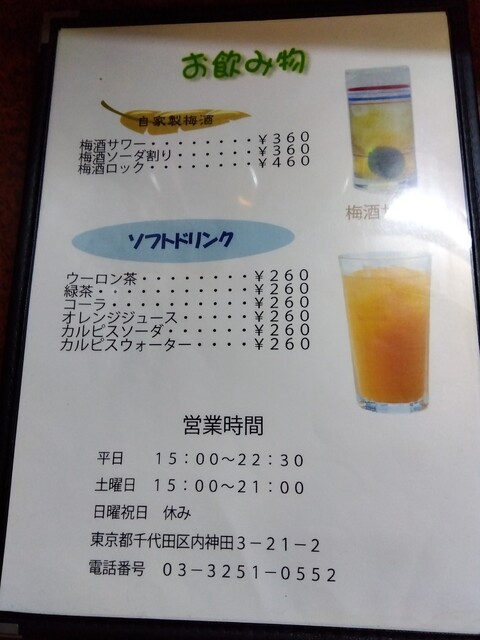 お飲み物
自家製梅酒
梅酒サワー・・・・・・・・¥360
梅酒ソーダ割り・・・・・・¥360
梅酒ロック・・・・・・・・¥460
梅酒サ
ソフトドリンク
ウーロン茶・・・・・・・・・¥260
緑茶・・・・・・・・・・・・¥260
コーラ・・・・・・・・・・・¥260
オレンジジュース・・・・・¥260
カルピスソーダ・・・・・・¥260
カルピスウォーター・・・・¥260
営業時間
平日 15：00〜22：30
土曜日 15：00〜21：00
日曜祝日 休み
東京都千代田区内神田3－21－2
電話番号 03－3251－0552